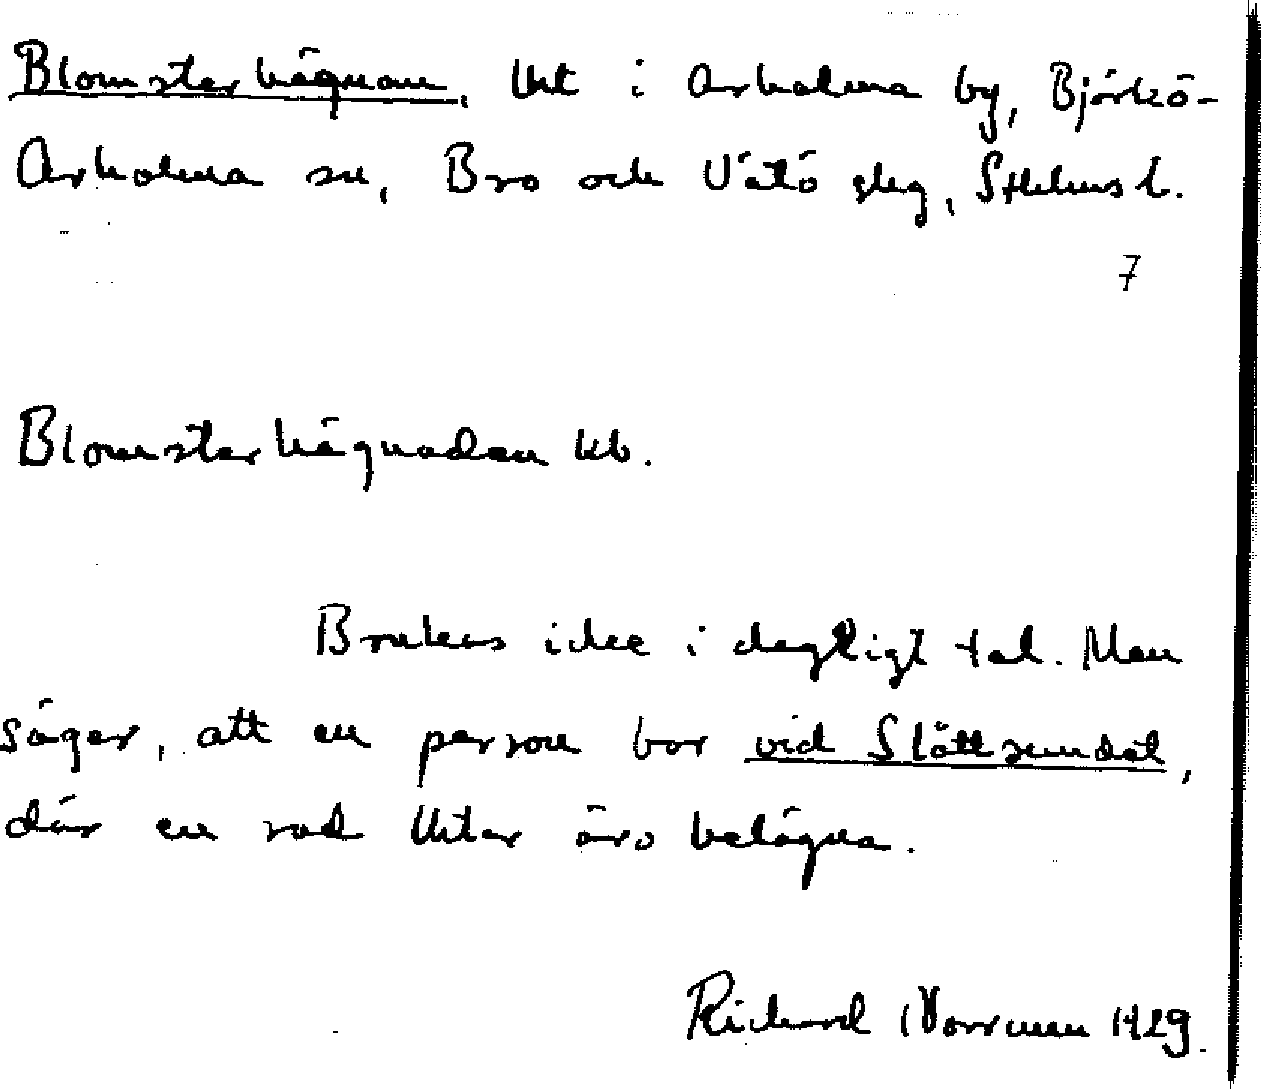 Blomsterhägnan, lht i Arholma by, Björkö-
Arholma sn, Bro och Vätö slg, Sthlms l.
7
Blomsterhägnaden kb.
Brukas icke i dagligt tal. Man
säger, att en person bor vid Slättsundet,
där en rad lhtar äro belägna.
Richard Norrman 1929.